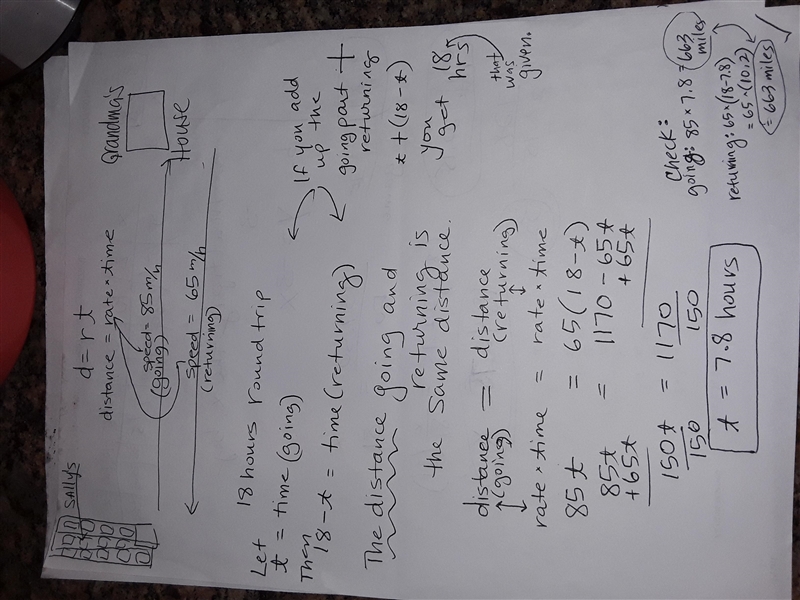 SALLY'S
d=rt
Grandma's
distance = rate × time
speed = 85 m/h
(going)
House
speed = 65 m/h
(returning)
18 hours round trip
Let
t = time (going)
Then
18-t = time (returning)
If you add
up the
going part +
returning
t + (18-t)
you
get 18
hrs
that
was
given.
The distance going and
returning is
the same distance.
distance = distance
(going) (returning)
rate × time = rate × time
85t = 65(18-t)
85t = 1170 - 65t
+65t +65t
150t = 1170
150 150
t = 7.8 hours
Check:
going: 85 × 7.8 = 663
miles
returning: 65 × (18-7.8)
= 65 × (10.2)
= 663 miles